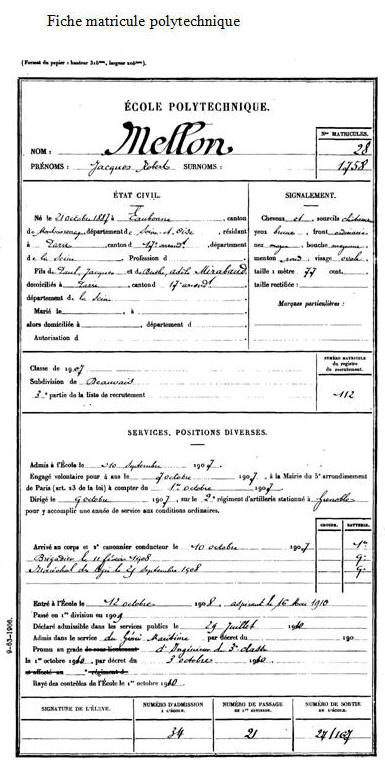 Fiche matricule polytechnique
(Format du papier : hauteur 315mm, largeur 206mm).
ÉCOLE POLYTECHNIQUE.
NOM : Mellon
Nos MATRICULES.
28
PRÉNOMS : Jacques Robert SURNOMS :
1758
ÉTAT CIVIL.
Né le 21 octobre 1887 à Eaubonne, canton
de Montmorency, département de Seine-et-Oise, résidant
à Paris, canton 17e arrondt, département
de la Seine Profession d
Fils de Paul, Jacques et de Berthe, Adèle Mirabaud
domiciliés à Paris, canton 17e arrondt
département de la Seine
Marié le à
alors domiciliée à, département d
Autorisation d
SIGNALEMENT.
Cheveux et sourcils châtains
yeux bruns, front ordinaire
nez moyen, bouche moyenne
menton rond, visage ovale
taille 1 mètre 77 cent.
taille rectifiée :
Marques particulières :
Classe de 1907
Subdivision de Beauvais
3e partie de la liste de recrutement
NUMÉRO MATRICULE
du registre
de recrutement.
112
SERVICES, POSITIONS DIVERSES.
Admis à l'École le 10 septembre 1907.
Engagé volontaire pour 4 ans le 7 octobre 1907, à la Mairie du 5e arrondissement
de Paris (art. 23 de la loi) à compter du 1er octobre 1907.
Dirigé le 9 octobre 1907, sur le 2e régiment d'artillerie stationné à Grenoble
pour y accomplir une année de service aux conditions ordinaires.
GROUPE.
BATTERIE.
Arrivé au corps et 2e canonnier conducteur le 10 octobre 1907
Brigadier le 11 février 1908
9e
Maréchal des logis le 29 septembre 1908
9e
Entré à l'École le 12 octobre 1908, aspirant le 16 mai 1910
Passé en 1re division en 1909
Déclaré admissible dans les services publics le 29 juillet 1910
Admis dans le service du Génie Maritime par décret du 190
Promu au grade de sous-lieutenant d'Ingénieur de 3e classe
le 1er octobre 1910, par décret du 3 octobre 1910.
et affecté au régiment d
Rayé des contrôles de l'École le 1er octobre 1910
9-63-1906.
SIGNATURE DE L'ÉLÈVE.
NUMÉRO D'ADMISSION
À L'ÉCOLE.
NUMÉRO DE PASSAGE
EN 1re DIVISION.
NUMÉRO DE SORTIE
DE L'ÉCOLE.
34
21
27/167